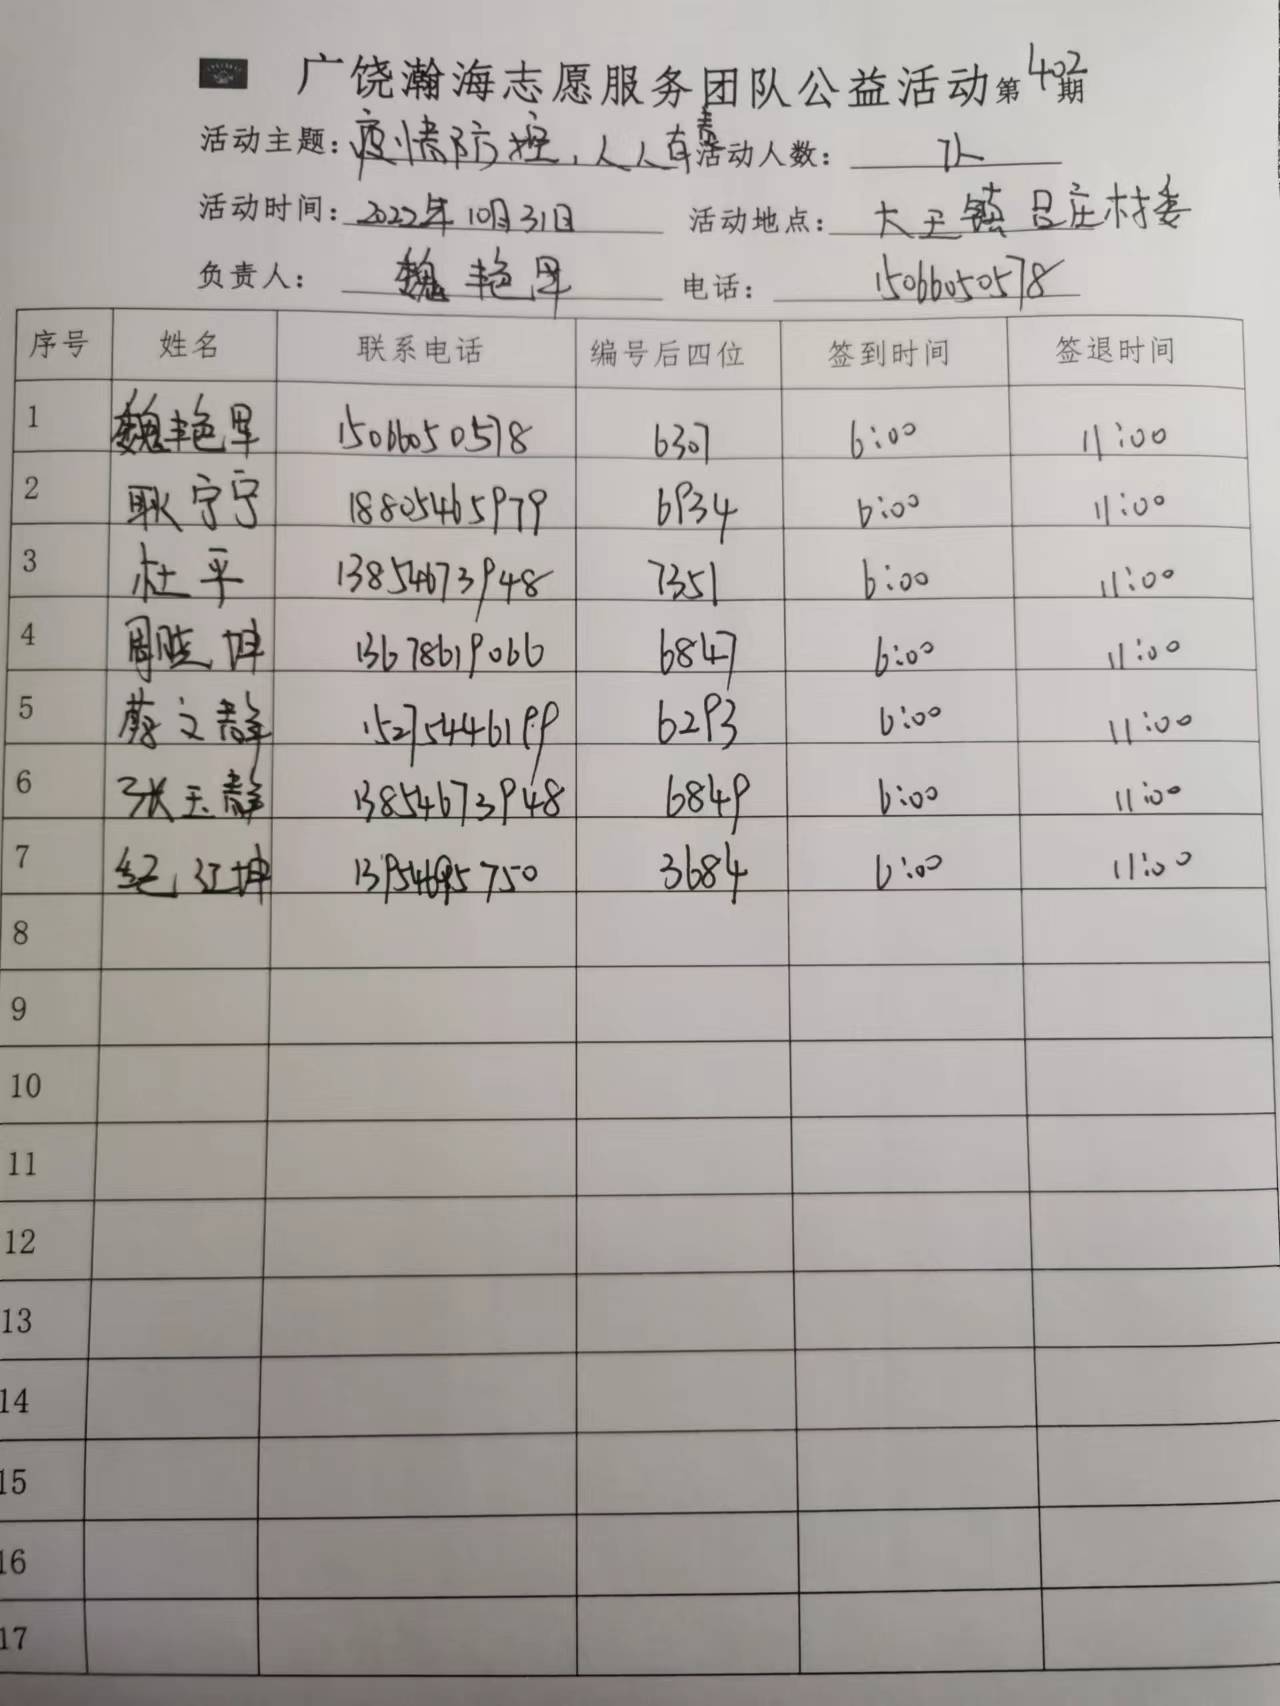 广饶瀚海志愿服务团队公益活动第402期
活动主题：疫情防控，人人有责 活动人数：7人
活动时间：2022年10月31日 活动地点：大王镇吕庄村委
负责人：魏艳 电话：15066050578
序号 姓名 联系电话 编号后四位 签到时间 签退时间
1 魏艳 15066050578 6307 6:00 11:00
2 耿宁宁 18805465979 6934 6:00 11:00
3 杜平 13854673948 7351 6:00 11:00
4 周晓坤 13678619066 6847 6:00 11:00
5 蔡文静 15275446199 6293 6:00 11:00
6 张玉静 13854673948 6849 6:00 11:00
7 纪江坤 13954695750 3684 6:00 11:00
8
9
10
11
12
13
14
15
16
17